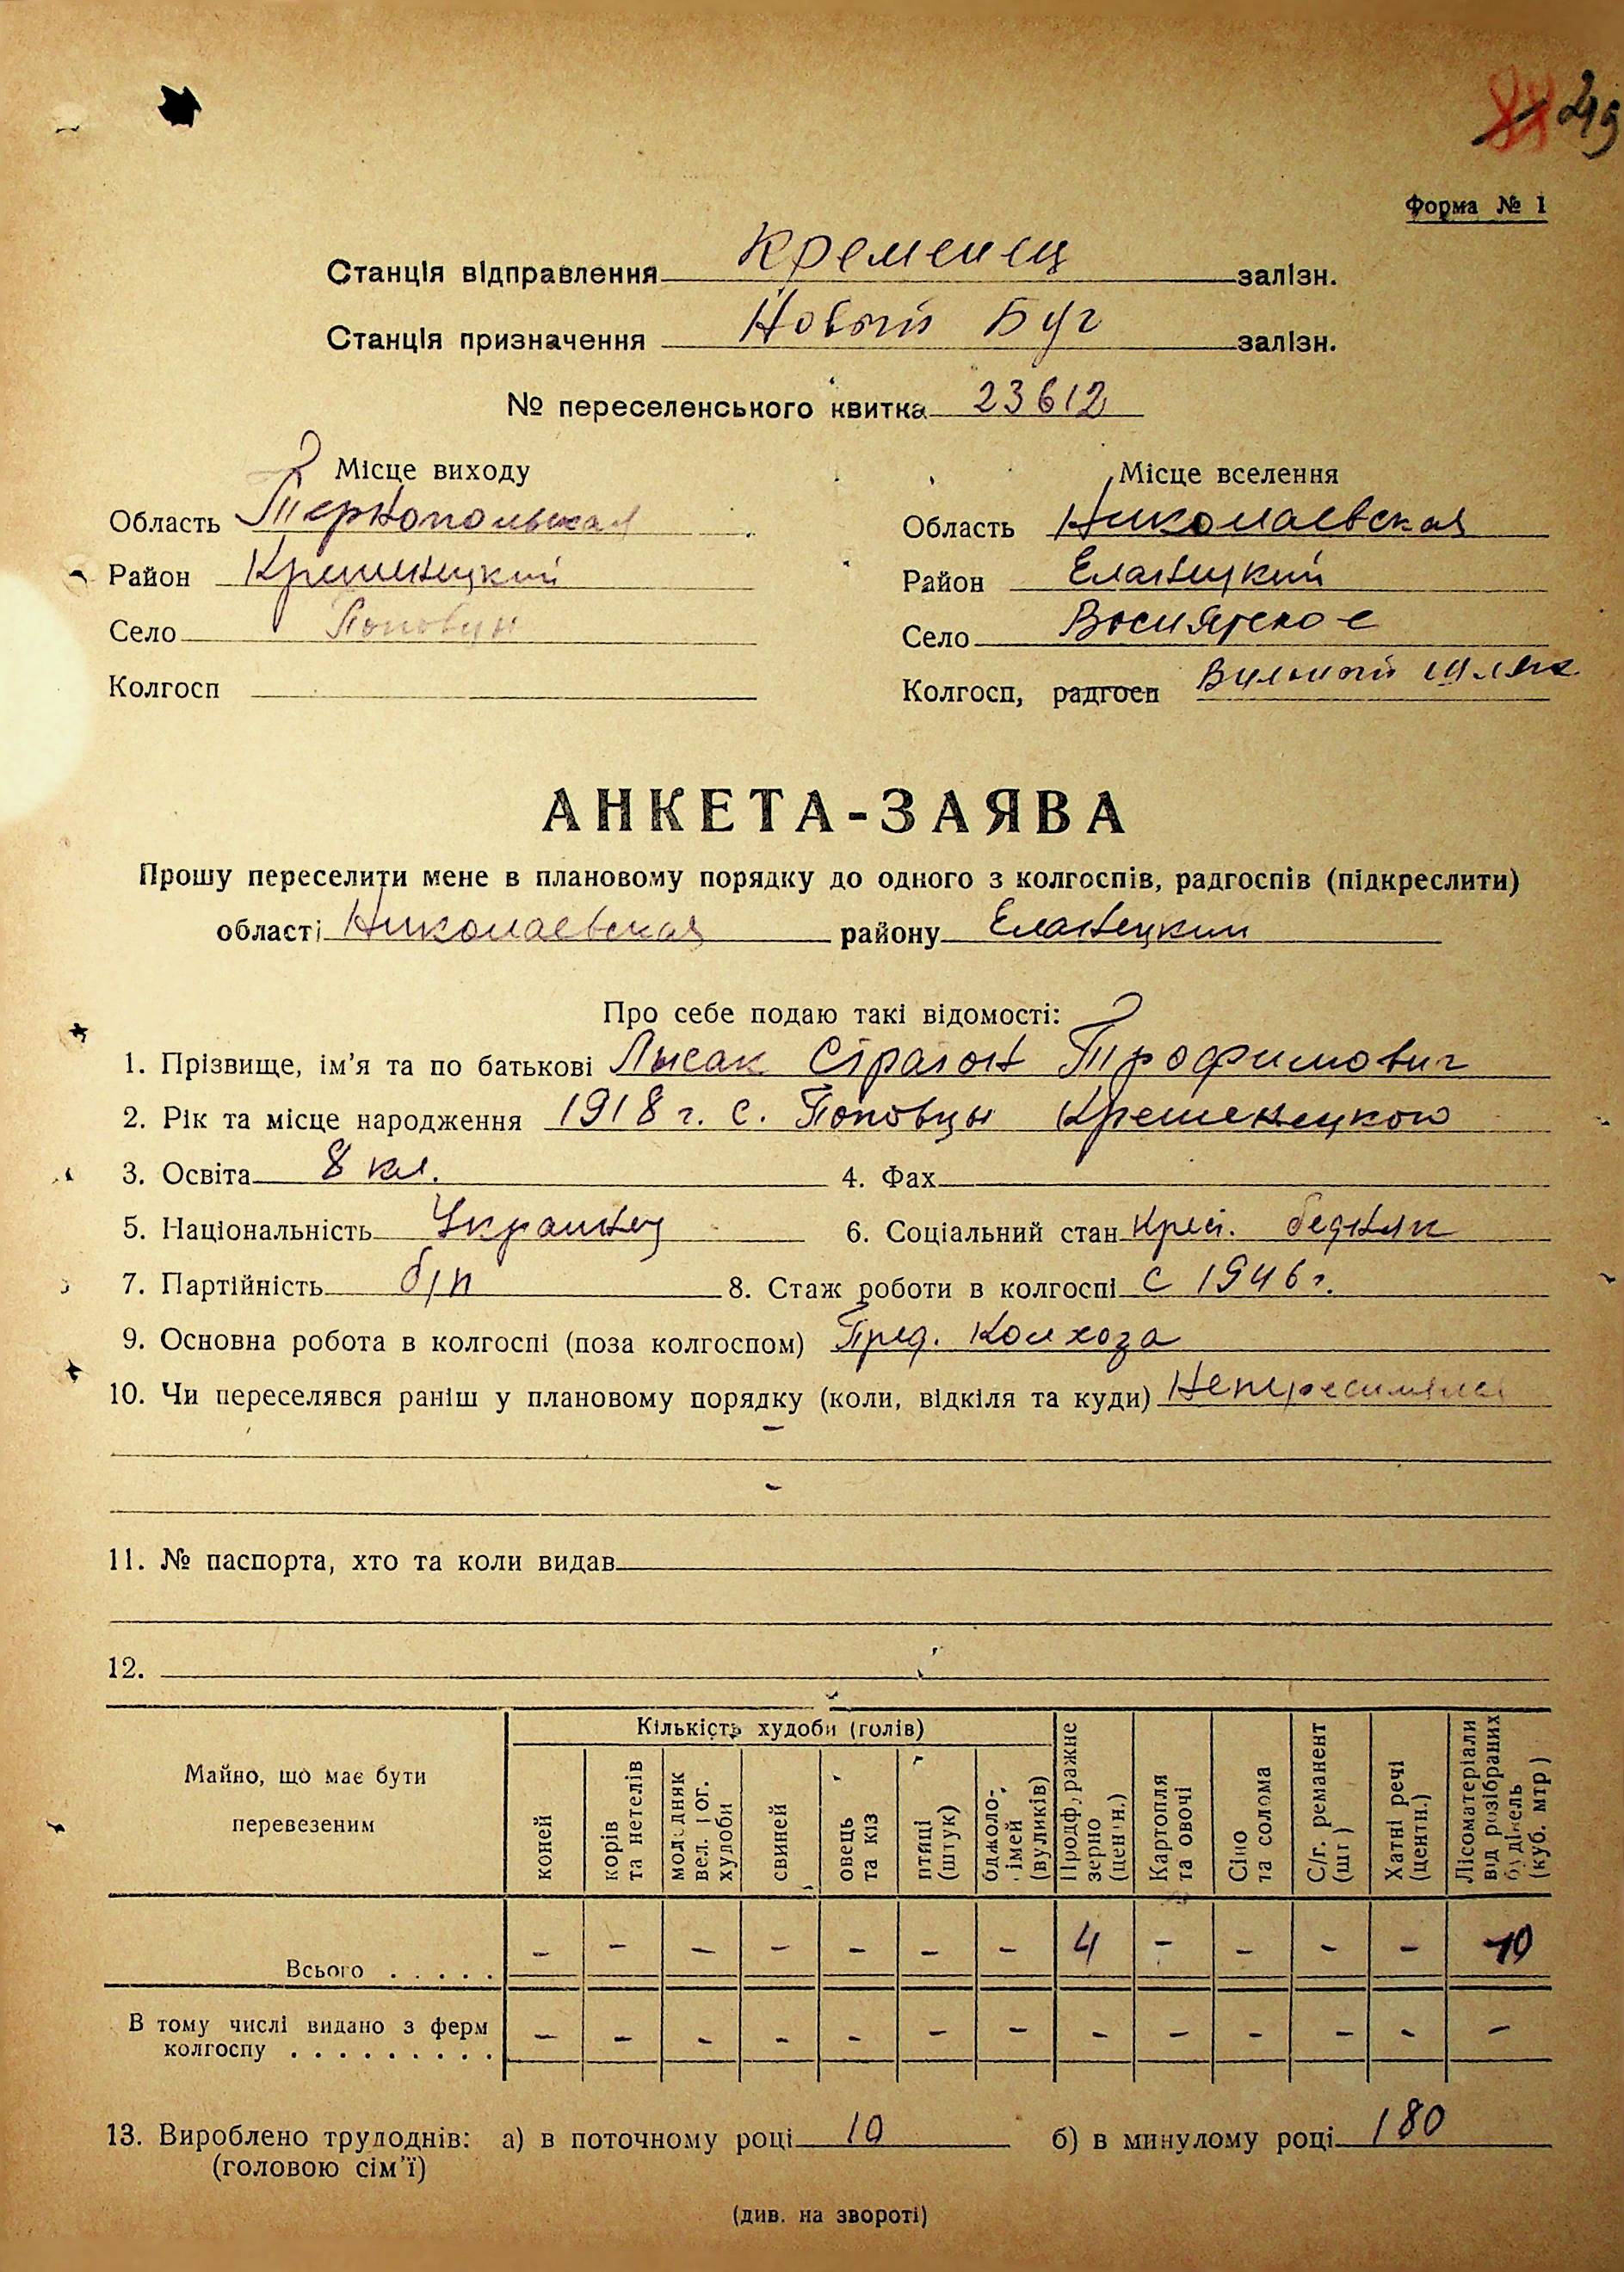 249
Форма № 1
Станція відправлення Кременец залізн.
Станція призначення Новый Буг залізн.
№ переселенського квитка 23612
Місце виходу
Область Тернопольская
Район Кременецкий
Село Поповцы
Колгосп
Місце вселення
Область Николаевская
Район Еланецкий
Село Восиятское
Колгосп, радгосп Вильный шлях
АНКЕТА-ЗАЯВА
Прошу переселити мене в плановому порядку до одного з колгоспів, радгоспів (підкреслити)
області Николаевская району Еланецкий
Про себе подаю такі відомості:
1. Прізвище, ім'я та по батькові Лысак Стратон Трофимович
2. Рік та місце народження 1918 г. с. Поповцы Кременецкого
3. Освіта 8 кл. 4. Фах
5. Національність Украинец 6. Соціальний стан Крест. бедняк
7. Партійність б/п 8. Стаж роботи в колгоспі с 1946 г.
9. Основна робота в колгоспі (поза колгоспом) Пред. Колхоза
10. Чи переселявся раніш у плановому порядку (коли, відкіля та куди) Непереселялся
-
-
11. № паспорта, хто та коли видав
12.
Майно, що має бути перевезеним
Кількість худоби (голів)
коней
корів та нетелів
молодняк вел. рог. худоби
свиней
овець та кіз
птиці (штук)
бджоло-сімей (вуликів)
Продфуражне зерно (центн.)
Картопля та овочі
Сіно та солома
С/г. реманент (шт)
Хатні речі (центн.)
Лісоматеріали від розібраних будівель (куб. мтр)
Всього . . . . . - - - - - - - 4 - - - - 10
В тому числі видано з ферм колгоспу . . . . . . . . . - - - - - - - - - - - - -
13. Вироблено трудоднів: а) в поточному році 10 б) в минулому році 180
(головою сім'ї)
(див. на звороті)